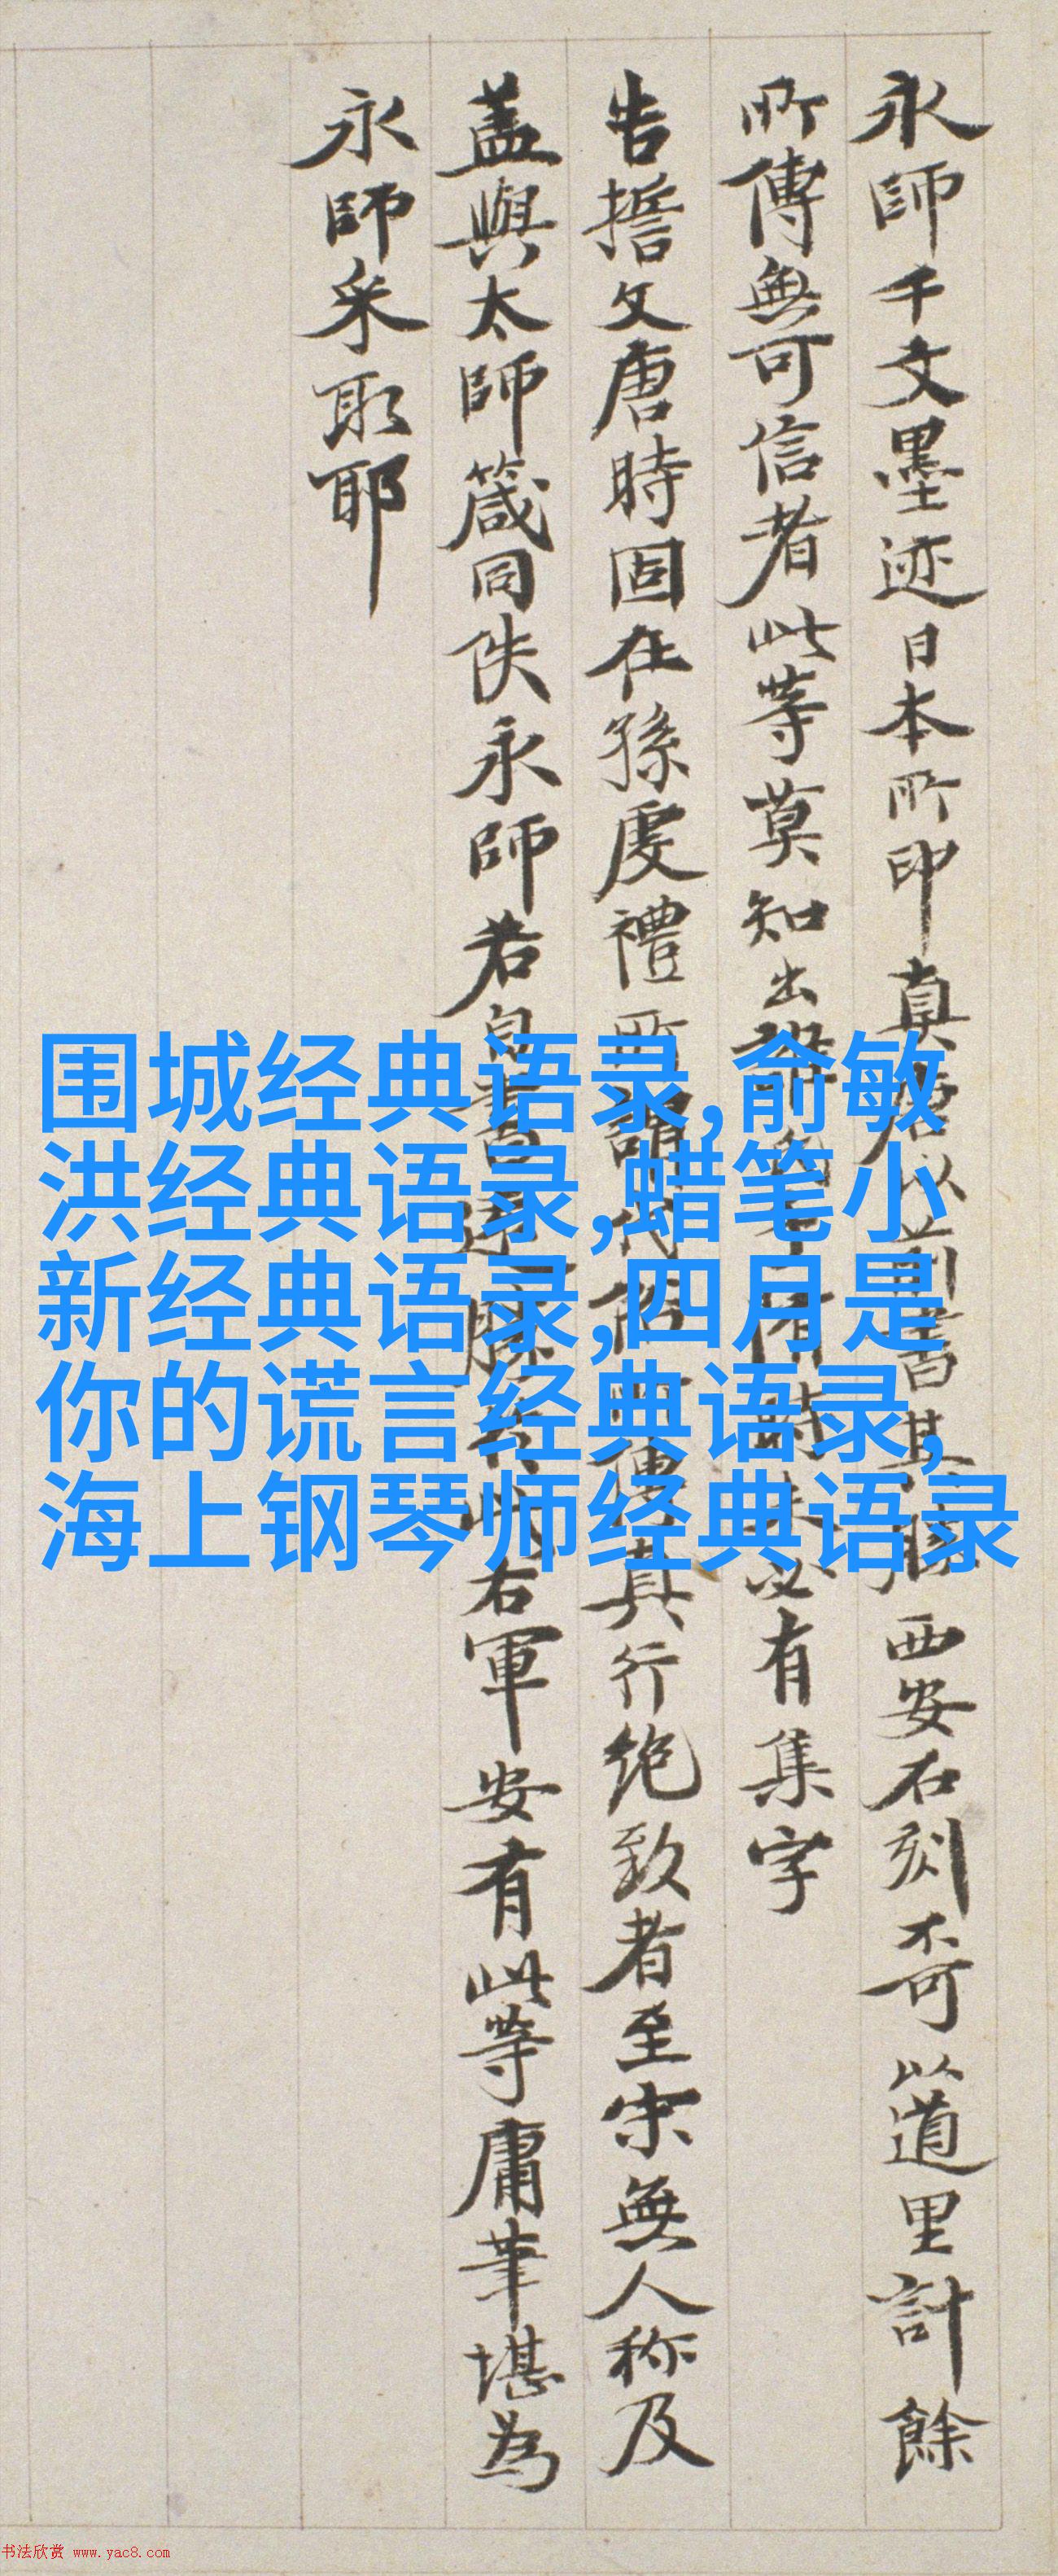 永師千文墨迹日本所印真唐以前書其勝西安石刻奇以道里計餘
所傳無可信者此等莫知出誰必有集字
告誓文唐時固在孫虔禮所謂代俗所傳真行絶致者至宋無人称及
盖與太師箴同佚永師若自書右軍安有此等庸筆堪為
永師采取耶
围城经典语录,俞敏
洪经典语录,蜡笔小
新经典语录,四月是
你的谎言经典语录,
海上钢琴师经典语录
书法欣赏 www.yac8.com